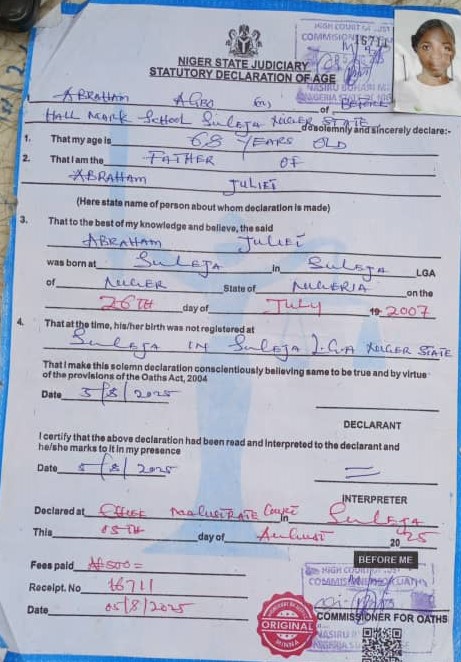 NIGER STATE JUDICIARY
STATUTORY DECLARATION OF AGE
HIGH COURT OF JUST
COMMISION
I, ABRAHAM AGBO (m) of BEHIND
HALL MARK SCHOOL SULEJA NIGER STATE do solemnly and sincerely declare:-
1. That my age is 68 YEARS OLD
2. That I am the FATHER OF
ABRAHAM JULIET
(Here state name of person about whom declaration is made)
3. That to the best of my knowledge and believe, the said
ABRAHAM JULIET
was born at SULEJA In SULEJA LGA
of NIGER State of NIGERIA on the
26TH day of JULY 19 2007
4. That at the time, his/her birth was not registered at
SULEJA IN SULEJA L.G.A NIGER STATE
That I make this solemn declaration conscientiously believing same to be true and by virtue
of the provisions of the Oaths Act, 2004
Date 5/8/2025
DECLARANT
I certify that the above declaration had been read and interpreted to the declarant and
he/she marks to it in my presence
Date 5/8/2025
INTERPRETER
Declared at CHIEF MAGISTRATE COURT in SULEJA
This 05TH day of AUGUST 20 25
BEFORE ME
Fees paid ₦500=
Receipt. No 16711
Date 05/8/2025
HIGH COURT
ORIGINAL
MINNA
COMMISSIONER FOR OATHS